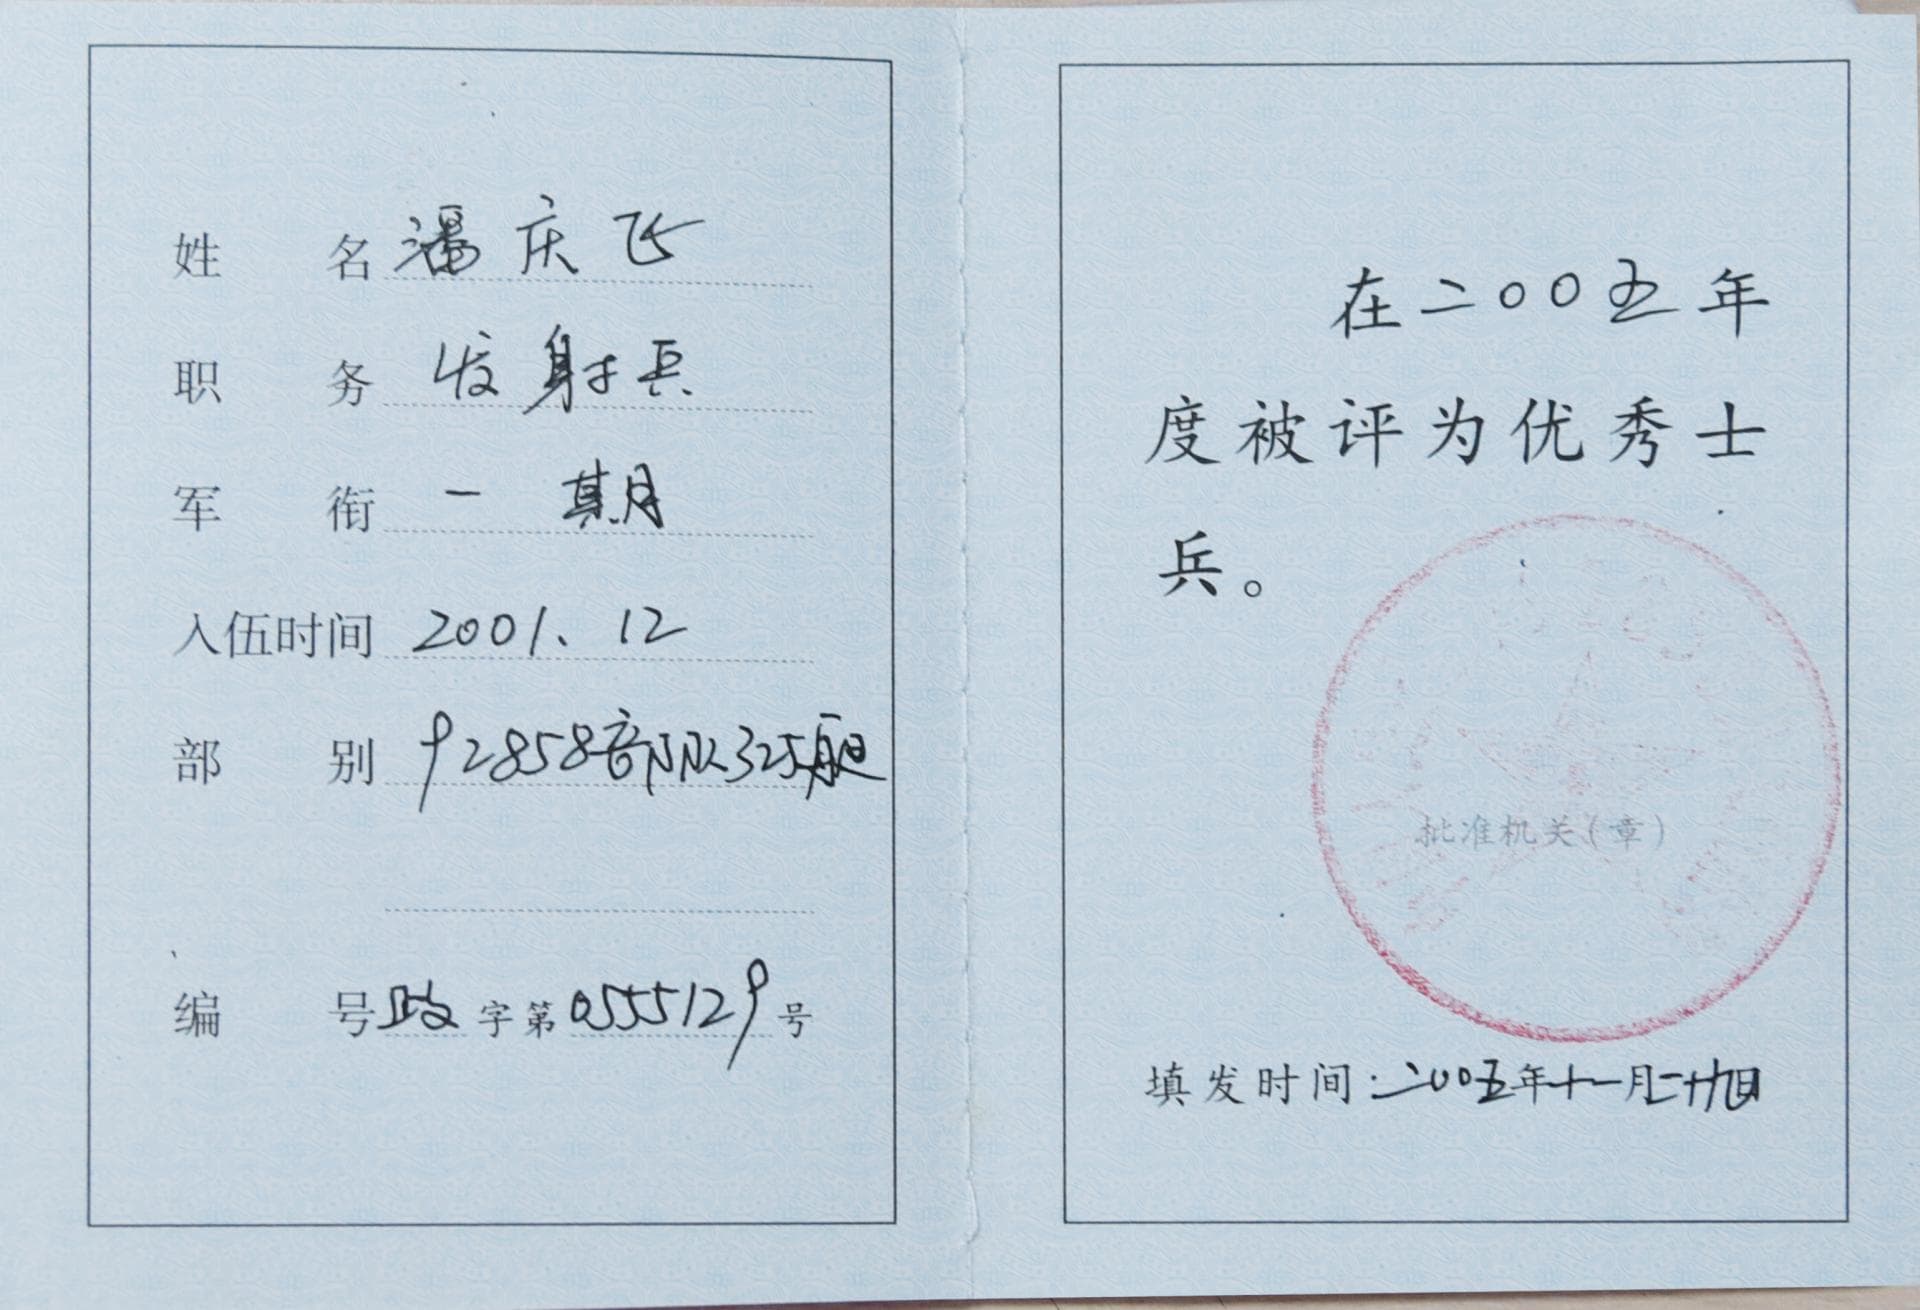 姓名 潘庆飞
职务 发射兵
军衔 一期
入伍时间 2001.12
部别 92858部队325艇
编号 政字第0555129号
在二〇〇五年
度被评为优秀士
兵。
批准机关(章)
填发时间:二〇〇五年十一月二十九日